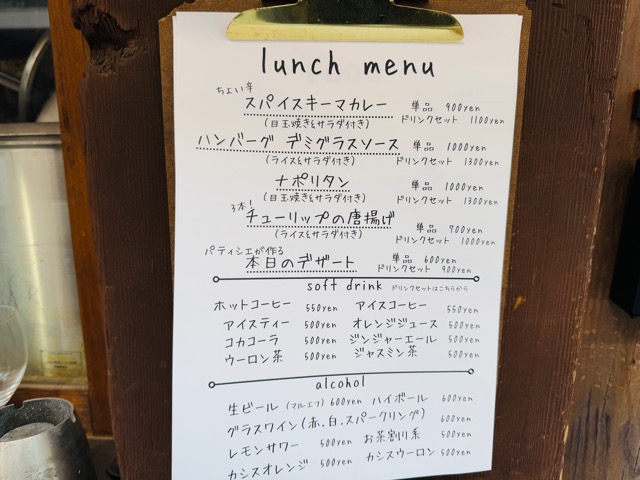 lunch menu
ちょい辛
スパイスキーマカレー 単品 900yen
(目玉焼き&サラダ付き) ドリンクセット 1100yen
ハンバーグ デミグラスソース 単品 1000yen
(ライス&サラダ付き) ドリンクセット 1300yen
ナポリタン 単品 1000yen
(目玉焼き&サラダ付き) ドリンクセット 1300yen
3本!
チューリップの唐揚げ 単品 700yen
(ライス&サラダ付き) ドリンクセット 1000yen
パティシエが作る
本日のデザート 単品 600yen
ドリンクセット 900yen
soft drink ドリンクセットはこちらから
ホットコーヒー 550yen アイスコーヒー 550yen
アイスティー 500yen オレンジジュース 500yen
コカコーラ 500yen ジンジャーエール 500yen
ウーロン茶 500yen ジャスミン茶 500yen
alcohol
生ビール (マルエフ) 600yen ハイボール 600yen
グラスワイン(赤.白.スパークリング) 600yen
レモンサワー 500yen お茶割り系 500yen
カシスオレンジ 500yen カシスウーロン 500yen